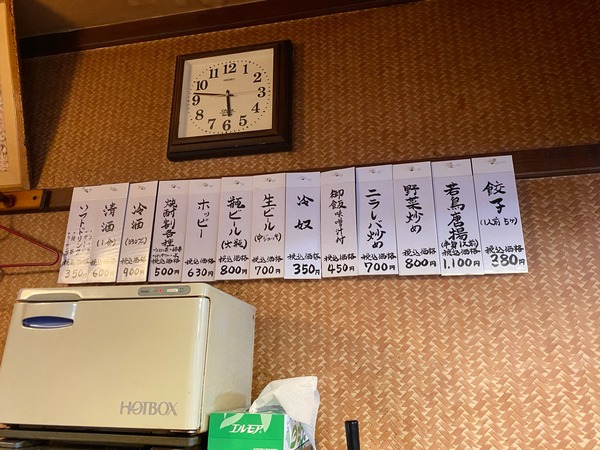 12
1
2
3
4
5
6
7
8
9
10
11
SEIKO
餃子
(1人前 5ケ)
税込価格
380円
若鳥唐揚
(半身1人前)
税込価格
1,100円
野菜炒め
税込価格
800円
ニラレバ炒め
税込価格
700円
御飯
味噌汁付
税込価格
450円
冷奴
税込価格
350円
生ビール
(中ジョッキ)
税込価格
700円
瓶ビール
(大瓶)
税込価格
800円
ホッピー
税込価格
630円
焼酎割各種
税込価格
500円
冷酒
税込価格
900円
清酒
(1合)
税込価格
600円
ソフトドリンク
350円
HOTBOX
エルモア